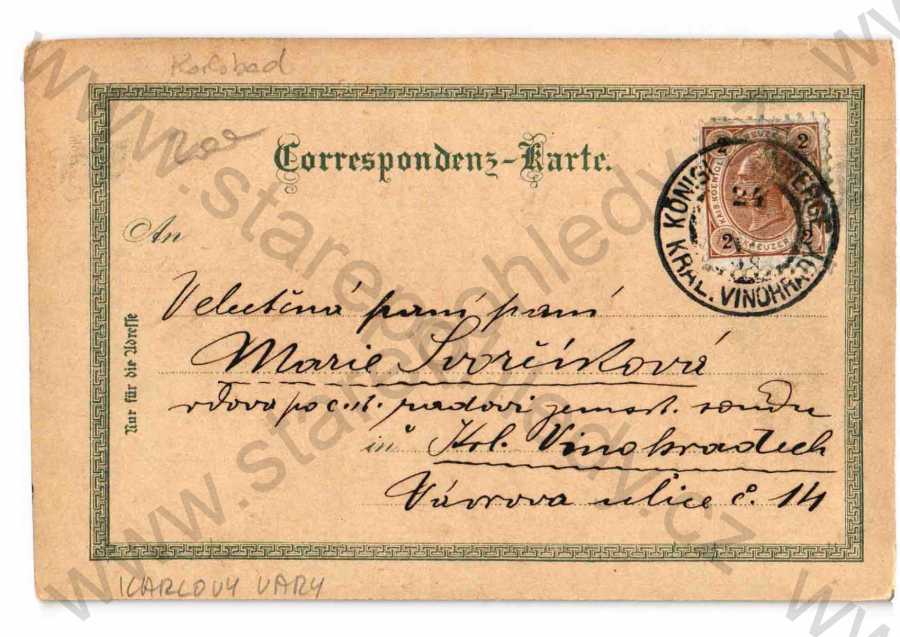 Karlsbad
Correspondenz-Karte.
2 2
KÖNIGL.
24
2 KREUZER 2
KRÁL. VINOHRADY
An
Nur für die Adresse
Velectěná paní paní
Marie Svorčíková
vdova po c. k. radovi zemsk. soudu
in Krl. Vinohradech
Vávrova ulice č. 14
KARLOVY VARY
www.starepohledy.cz